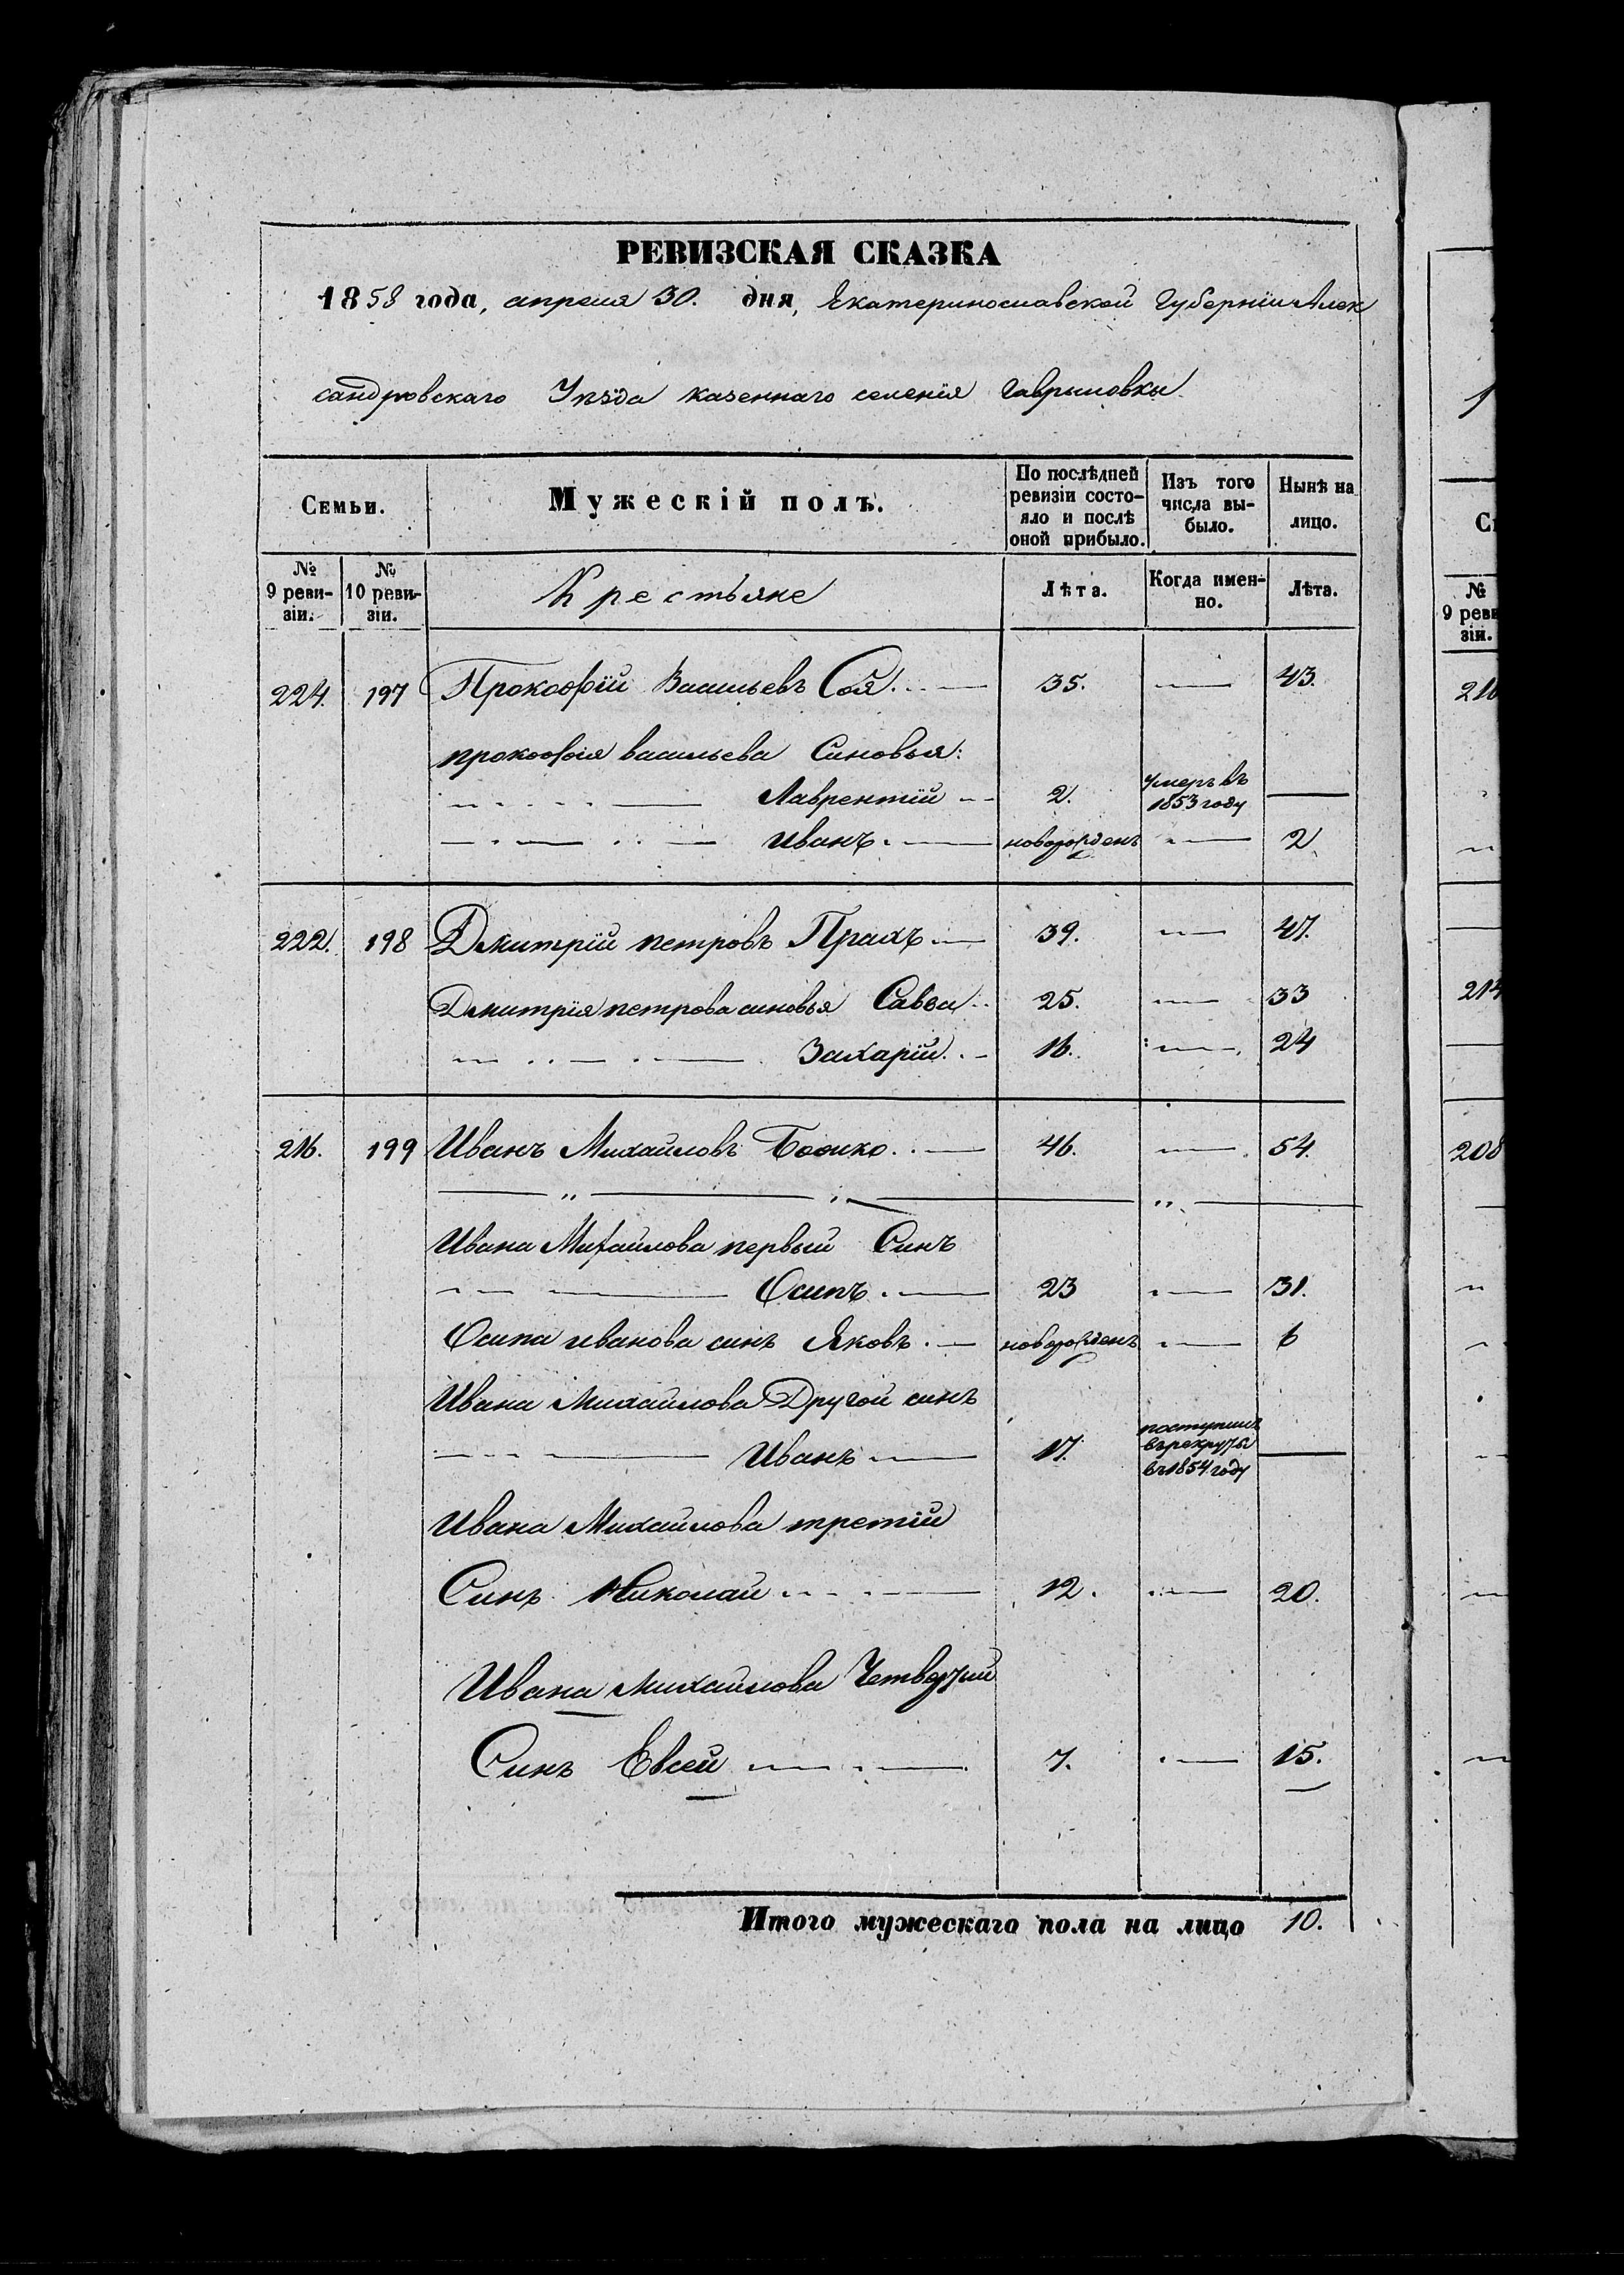 РЕВИЗСКАЯ СКАЗКА
1858 года, апреля 30. дня, Екатеринославской Губерніи Алек
сандровскаго Уѣзда казеннаго селенія Гаврыловки.
Семьи.
Мужескій полъ.
По послѣдней ревизіи состо-яло и послѣ оной прибыло.
Изъ того числа вы-было.
Нынѣ на лицо.
№ 9 реви-зіи.
№ 10 реви-зіи.
Крестьяне
Лѣта.
Когда имен-но.
Лѣта.
224. 197 Прокофій Васильевъ Соя. 35. 43.
прокофія васильева Синовья:
Лаврентій 2. умеръ въ 1853 году
Иванъ. новорожденъ 2
222. 198 Дмитрій петровъ Прахъ 39. 47.
Дмитрія петрова синовья Савва 25. 33
Захарій. 16. 24
216. 199 Иванъ Михайловъ Бойко. 46. 54.
Ивана Михайлова первый Синъ
Осипъ. 23 31.
Осипа иванова синъ Яковъ. новорожденъ 6
Ивана Михайлова Другой синъ
Иванъ 17. поступилъ въ рекруты въ 1854 году
Ивана Михайлова третій
Синъ Николай 12. 20.
Ивана Михайлова Четвертий
Синъ Евсей 7. 15.
Итого мужескаго пола на лицо 10.
№
9 реви
зіи.
208